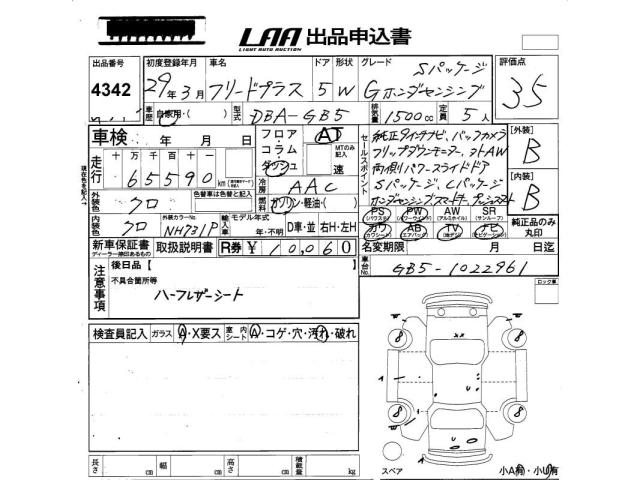 LAA 出品申込書
LIGHT AUTO AUCTION
出品番号 初度登録年月 車名 ドア 形状 グレード 評価点
4342 29年3月 フリードプラス 5 W Sパッケージ 35
Gホンダセンシング
車歴 自家用・( ) 型式 DBA-GB5 排気量 1500cc 定員 5人
車検 年 月 日 フロア コラム ダッシュ AT MTのみ記入 速
セールスポイント
純正9インチナビ、バックカメラ
フリップダウンモニター、
両側パワースライドドア
Sパッケージ、Cパッケージ
[外装] B
[内装] B
走行 十 万 千 百 十 一
65590 km
冷房 AAC
外装色 クロ 色替車は色替と記入 燃料 ガソリン・軽油・( )
内装色 クロ 外装カラーNo. NH731P 輸入車 モデル年式 年・不明 D車・並 右H・左H
PS PW AW SR
(パワステ) (パワーウインド) (アルミホイル) (サンルーフ)
カワ AB TV ナビ
(カワシート) (エアーバッグ) (地デジ) (ナビゲーション)
純正品のみ丸印
新車保証書 取扱説明書 R券 ¥ 10,060
ディーラー捺印あるもの
名変期限 月 日迄
車台No. GB5-1022961
注意事項 後日品【 】
不具合箇所等
ハーフレザーシート
ロック車
検査員記入 ガラス A・X要ス 室内シート A・コゲ・穴・汚れ・破れ
長さ cm 幅 cm 高さ cm 積載量 kg
スペア 小A有・小U有